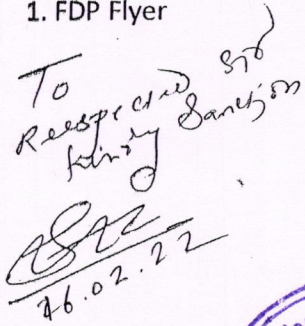 1. FDP Flyer
To
Respected Sir
kindly Sanction
16.02.22